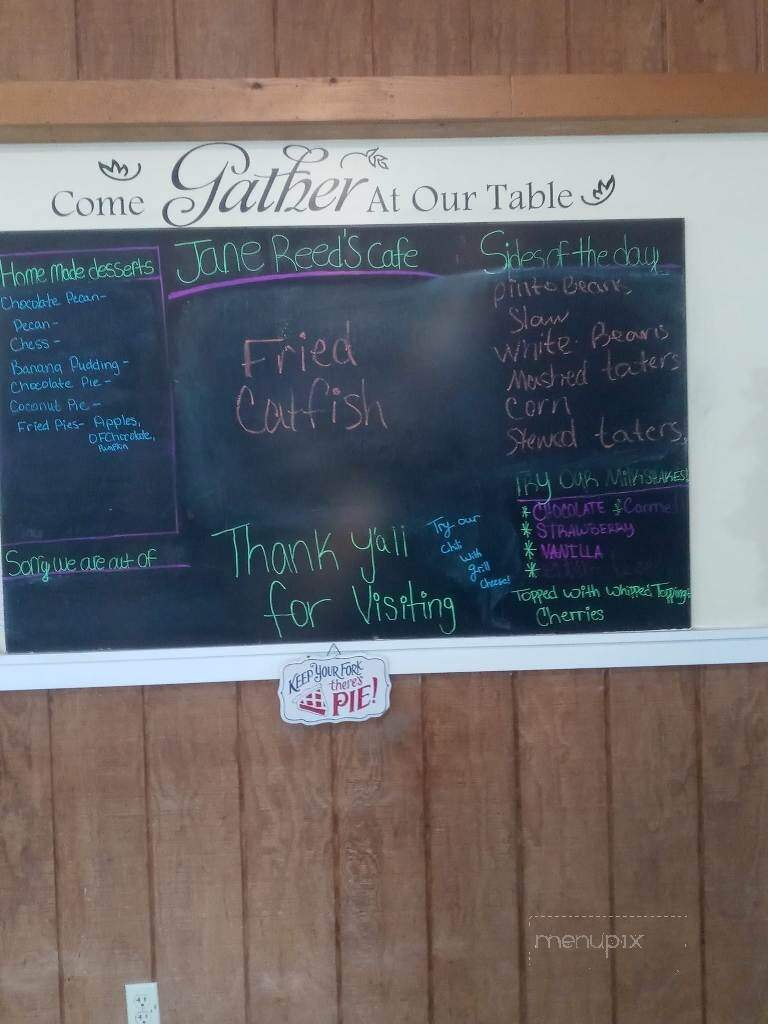 Come Gather At Our Table
Home made desserts
Chocolate Pecan-
Pecan-
Chess-
Banana Pudding-
Chocolate Pie-
Coconut Pie-
Fried Pies- Apples,
Chocolate,
Pumpkin
Sorry we are out of
Jane Reed's Cafe
Fried
Catfish
Thank y'all
for Visiting
Try our
Chili
with
grill
cheese!
Sides of the day
pinto Beans
Slaw
White Beans
Mashed taters
Corn
Stewed taters
Try Our Milkshakes!
*CHOCOLATE *Carmel
*STRAWBERRY
*VANILLA
*
Topped with whipped Topping
Cherries
KEEP YOUR FORK
there's
PIE!
menupix